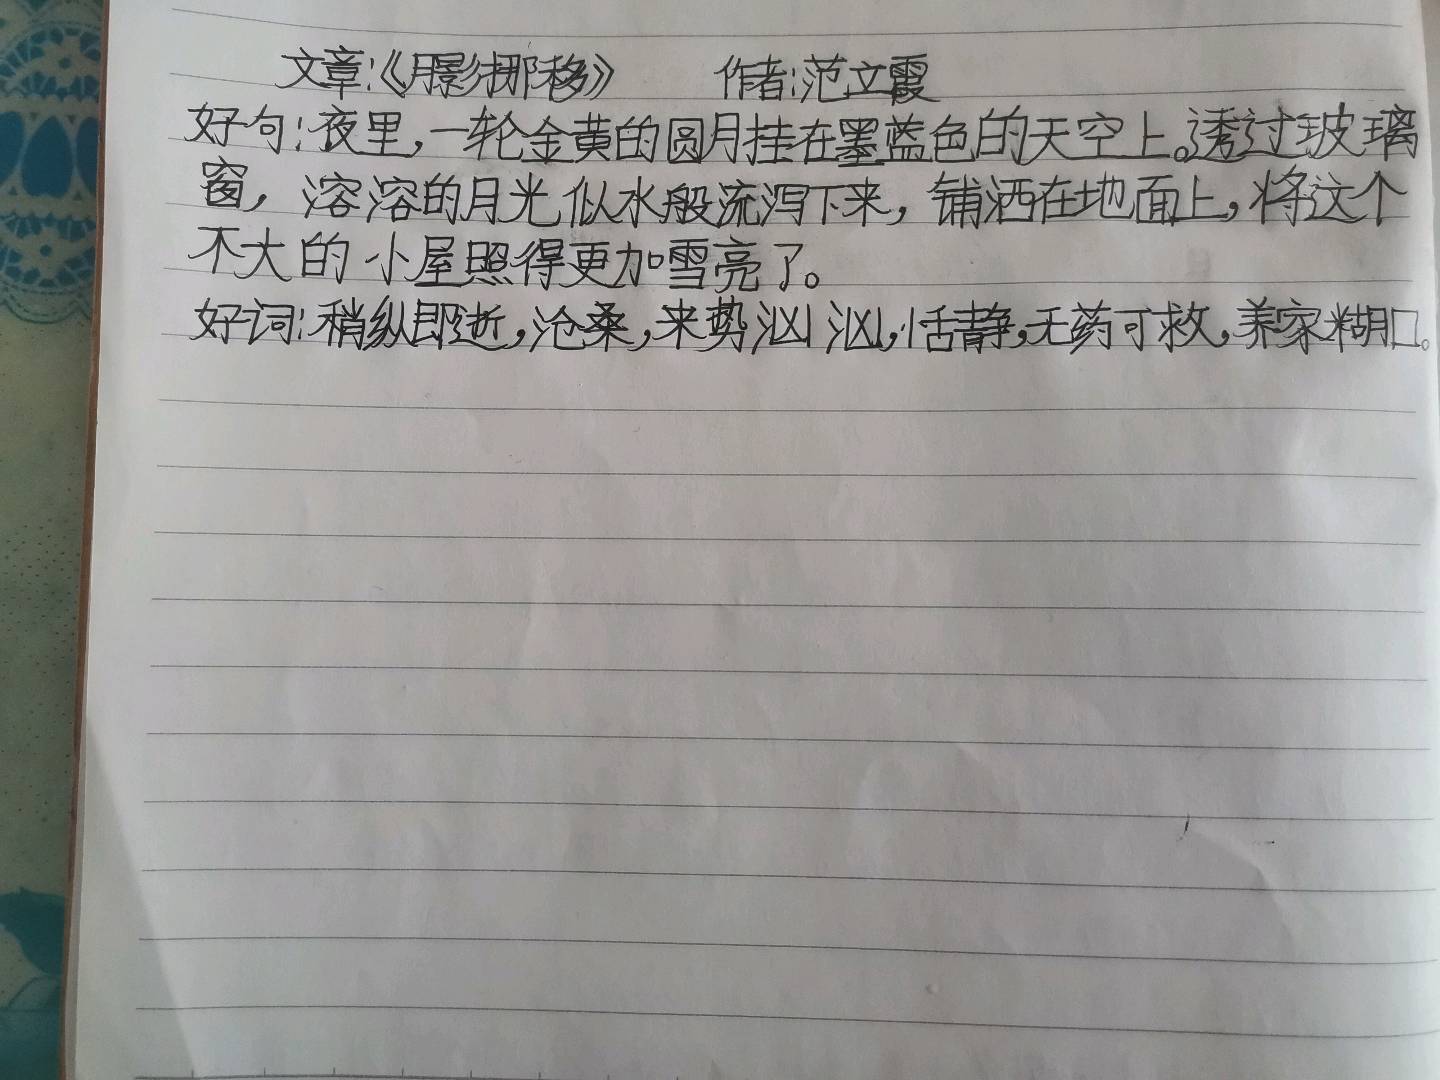 文章:《月影挪移》 作者:范文霞
好句:夜里,一轮金黄的圆月挂在墨蓝色的天空上。透过玻璃
窗,溶溶的月光似水般流泻下来,铺洒在地面上,将这个
不大的小屋照得更加雪亮了。
好词:稍纵即逝,沧桑,来势汹汹,恬静,无药可救,养家糊口。